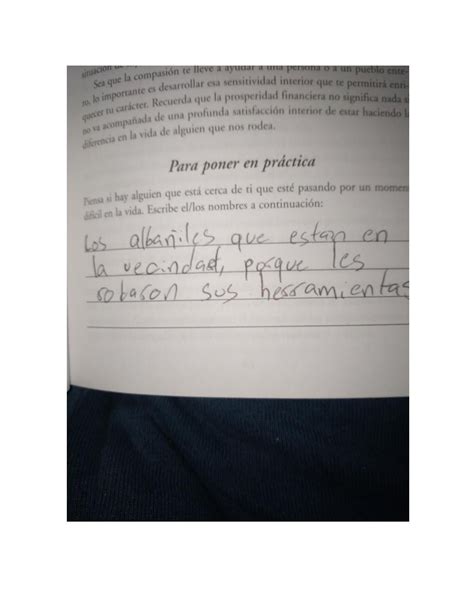 situación de
Sea que la compasión te lleve a ayudar a una persona o a un pueblo ente-
ro, lo importante es desarrollar esa sensitividad interior que te permitirá enri-
quecer tu carácter. Recuerda que la prosperidad financiera no significa nada si
no va acompañada de una profunda satisfacción interior de estar haciendo la
diferencia en la vida de alguien que nos rodea.
Para poner en práctica
Piensa si hay alguien que está cerca de ti que esté pasando por un momen
difícil en la vida. Escribe el/los nombres a continuación:
Los albañiles que estan en
la vecindad, porque les
robaron sus herramientas